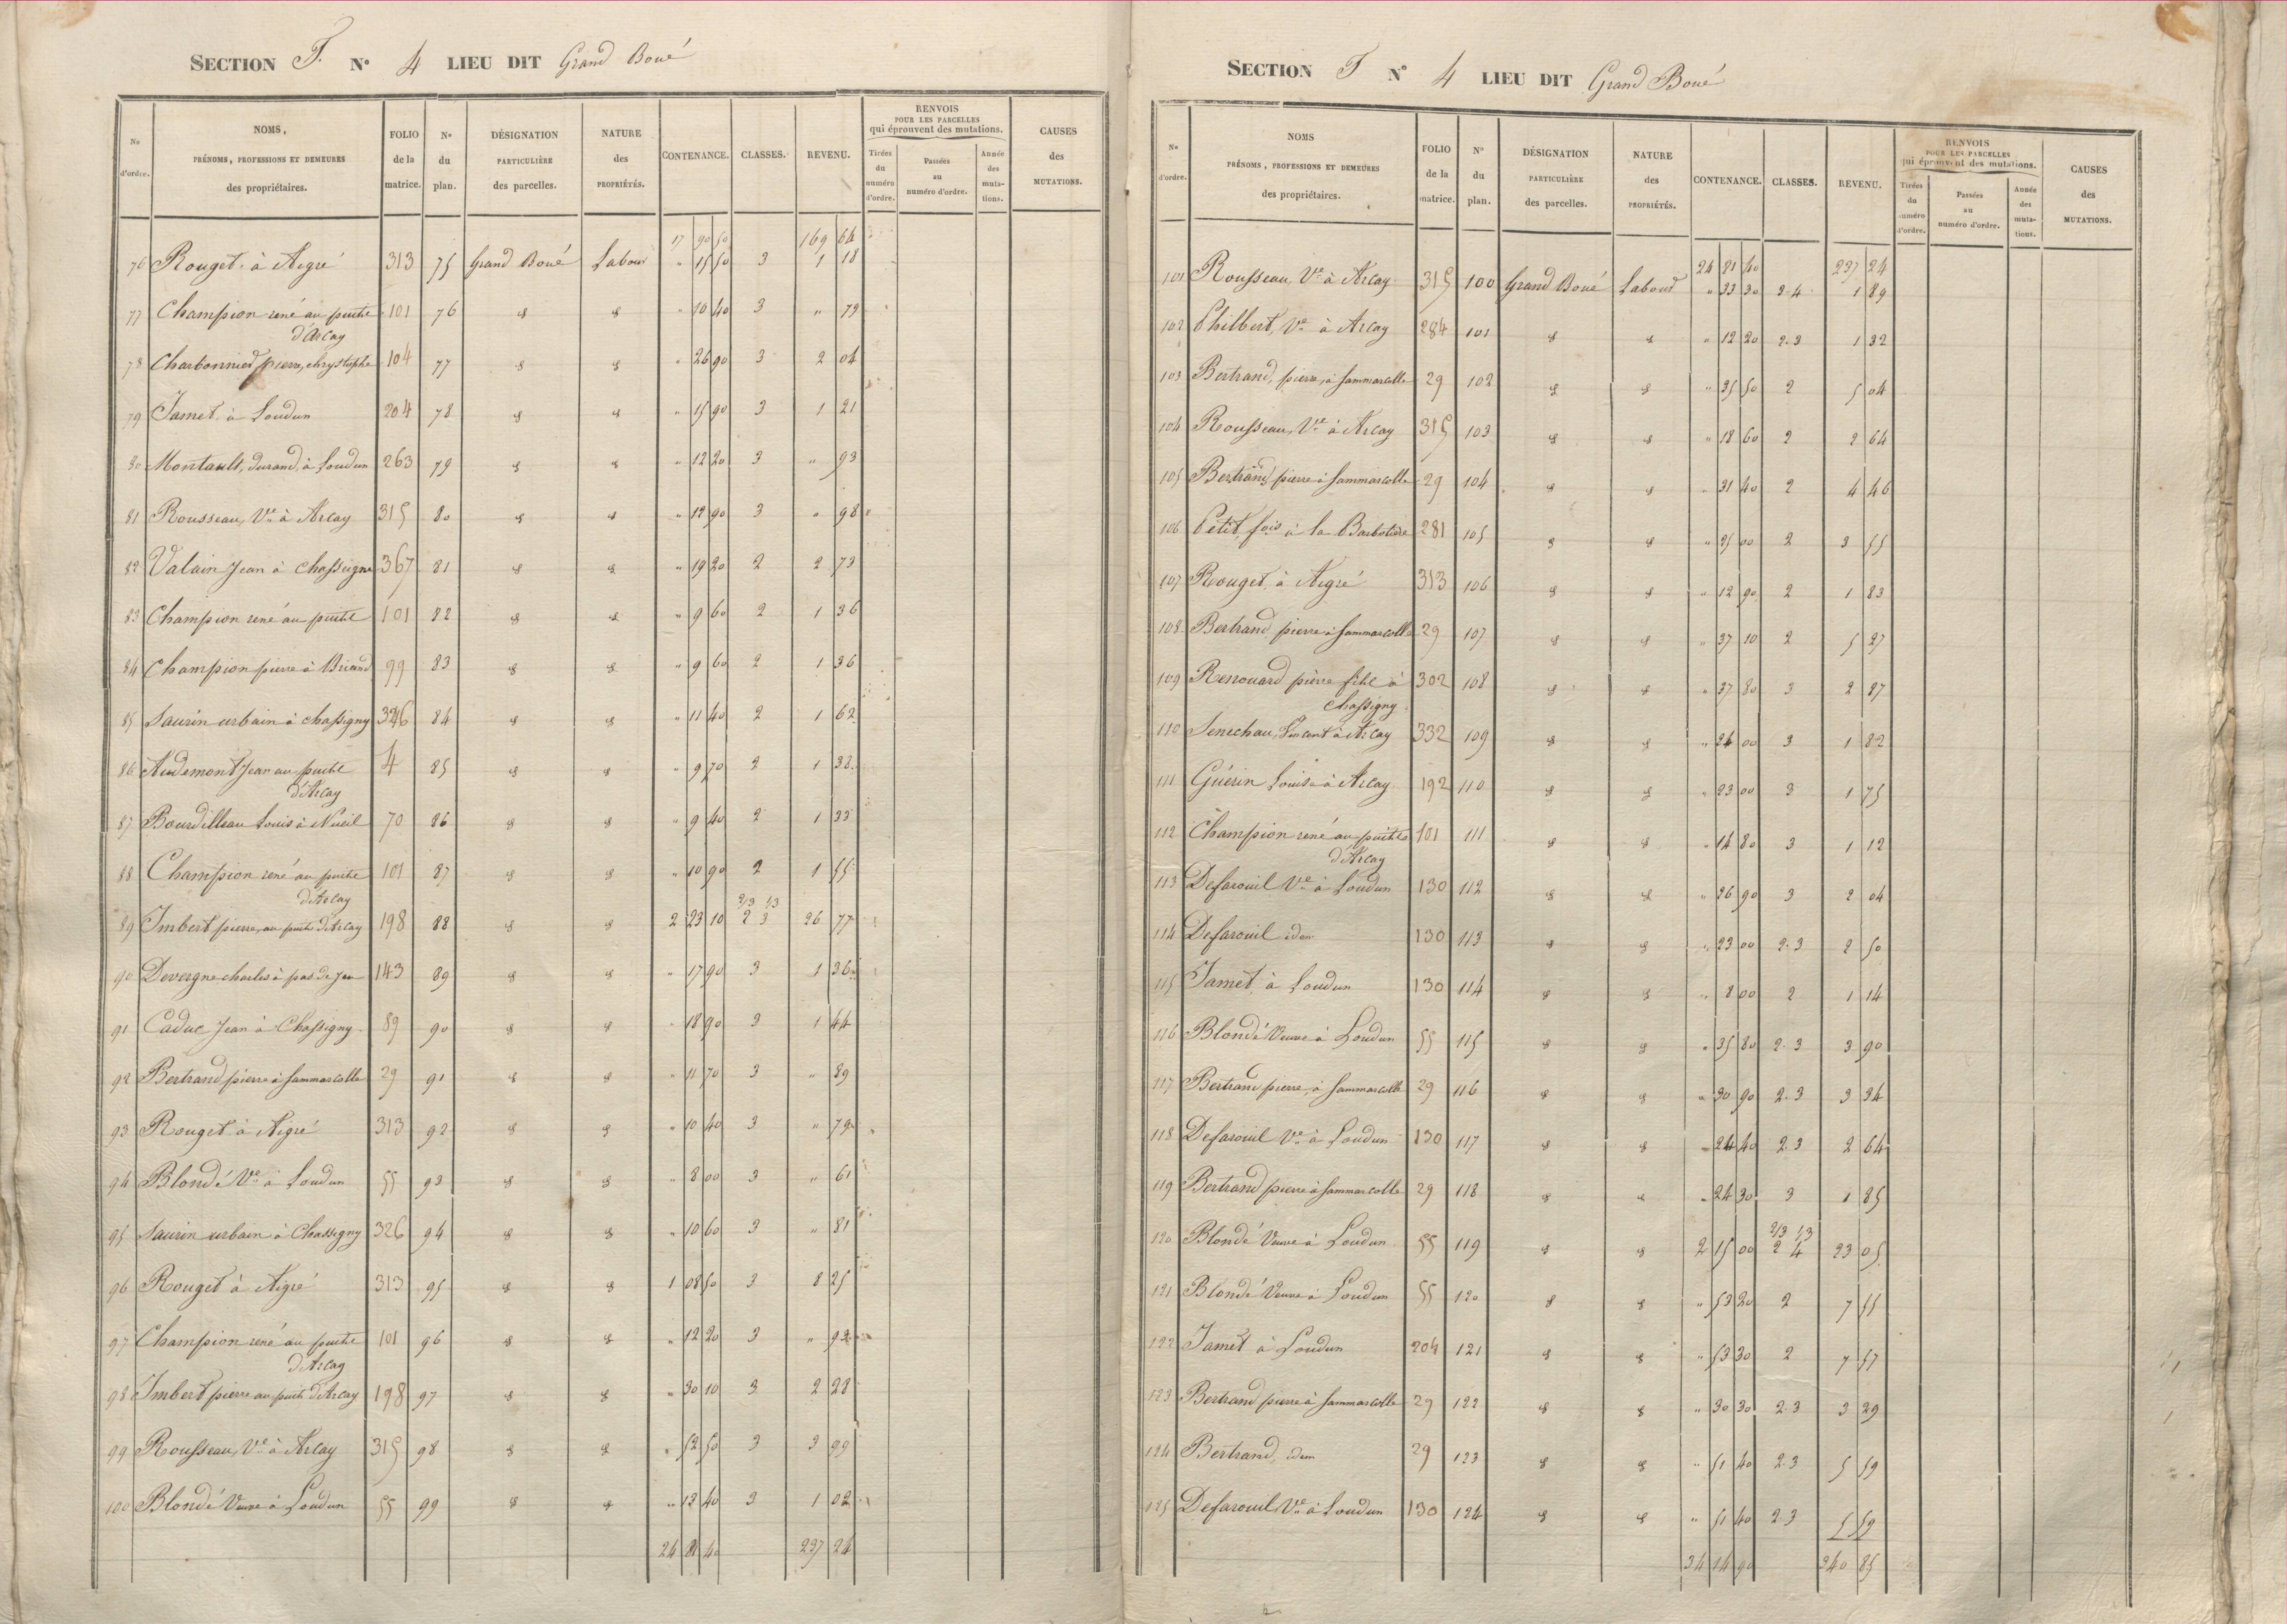 SECTION F. N° 4 LIEU DIT Grand Boué
N° d'ordre. NOMS, PRÉNOMS, PROFESSIONS ET DEMEURES des propriétaires. FOLIO de la matrice. N° du plan. DÉSIGNATION PARTICULIÈRE des parcelles. NATURE des PROPRIÉTÉS. CONTENANCE. CLASSES. REVENU. RENVOIS POUR LES PARCELLES qui éprouvent des mutations. Tirées du numéro d'ordre. Passées au numéro d'ordre. Année des mutations. CAUSES des MUTATIONS.
17 90 50 169 64
76 Rouget à Aigré 313 75 Grand Boué Labour " 15 50 3 1 18
77 Champion rené au puits 101 76 d° d° " 10 40 3 " 79
d'Arcay
78 Charbonnier pierre, chrystophe 104 77 d° d° " 26 90 3 2 04
79 Jamet à Loudun 204 78 d° d° " 15 90 3 1 21
80 Montault, durand, à Loudun 263 79 d° d° " 12 20 3 " 93
81 Rousseau, Ve à Arcay 315 80 d° d° " 12 90 3 " 98
82 Valain Jean à Chassigne 367 81 d° d° " 19 20 2 2 73
83 Champion rené au puits 101 82 d° d° " 9 60 2 1 36
84 Champion pierre à Briand 99 83 d° d° " 9 60 2 1 36
85 Saurin urbain à chassigny 326 84 d° d° " 11 40 2 1 62
86 Audemont Jean au puits 4 85 d° d° " 9 70 2 1 38
d'Arcay
87 Bourdilleau Louis à Nueil 70 86 d° d° " 9 40 2 1 33
88 Champion rené au puits 101 87 d° d° " 10 90 2 1 55
d'Arcay
2/3 1/3
89 Imbert pierre, au puits d'Arcay 198 88 d° d° 2 23 10 2 3 26 77
90 Devergne charles à pas de jeu 143 89 d° d° " 17 90 3 1 36
91 Caduc Jean à Chassigny 89 90 d° d° " 18 90 3 1 44
92 Bertrand pierre à Sammarcolle 29 91 d° d° " 11 70 3 " 89
93 Rouget à Aigré 313 92 d° d° " 10 40 3 " 79
94 Blondé Ve à Loudun 55 93 d° d° " 8 00 3 " 61
95 Saurin urbain à Chassigny 326 94 d° d° " 10 60 3 " 81
96 Rouget à Aigré 313 95 d° d° 1 08 50 3 8 25
97 Champion rené au puits 101 96 d° d° " 12 20 3 " 93
d'Arcay
98 Imbert pierre au puits d'Arcay 198 97 d° d° " 30 10 3 2 28
99 Rousseau, Ve à Arcay 315 98 d° d° " 52 50 3 3 99
100 Blondé Veuve à Loudun 55 99 d° d° " 13 40 3 1 02
24 81 40 237 24
SECTION F N° 4 LIEU DIT Grand Boué
N° d'ordre. NOMS PRÉNOMS, PROFESSIONS ET DEMEURES des propriétaires. FOLIO de la matrice. N° du plan. DÉSIGNATION PARTICULIÈRE des parcelles. NATURE des PROPRIÉTÉS. CONTENANCE. CLASSES. REVENU. RENVOIS POUR LES PARCELLES qui éprouvent des mutations. Tirées du numéro d'ordre. Passées au numéro d'ordre. Année des mutations. CAUSES des MUTATIONS.
24 81 40 237 24
101 Rousseau, Ve à Arcay 315 100 Grand Boué Labour " 33 30 2.4 1 89
102 Philbert, Ve à Arcay 284 101 d° d° " 12 20 2.3 1 32
103 Bertrand, pierre, à Sammarcolle 29 102 d° d° " 35 50 2 5 04
104 Rousseau, Ve à Arcay 315 103 d° d° " 18 60 2 2 64
105 Bertrand pierre à Sammarcolle 29 104 d° d° " 31 40 2 4 46
106 Petit fois à la Barbotière 281 105 d° d° " 25 00 2 3 55
107 Rouget à Aigré 313 106 d° d° " 12 90 2 1 83
108 Bertrand pierre à Sammarcolle 29 107 d° d° " 37 10 2 5 27
109 Renouard pierre fils à 302 108 d° d° " 37 80 3 2 87
Chassigny
110 Senechau, Vincent à Arcay 332 109 d° d° " 24 00 3 1 82
111 Guérin Louis à Arcay 192 110 d° d° " 23 00 3 1 75
112 Champion rené au puits 101 111 d° d° " 14 80 3 1 12
d'Arcay
113 Defarouil Ve à Loudun 130 112 d° d° " 26 90 3 2 04
114 Defarouil idem 130 113 d° d° " 23 00 2.3 2 50
115 Jamet à Loudun 130 114 d° d° " 8 00 2 1 14
116 Blondé Veuve à Loudun 55 115 d° d° " 35 80 2.3 3 90
117 Bertrand pierre, à Sammarcolle 29 116 d° d° " 30 90 2.3 3 34
118 Defarouil Ve à Loudun 130 117 d° d° " 24 40 2.3 2 64
119 Bertrand pierre à Sammarcolle 29 118 d° d° " 24 30 3 1 85
2/3 1/3
120 Blondé Veuve à Loudun 55 119 d° d° 2 15 00 2 4 23 05
121 Blondé Veuve à Loudun 55 120 d° d° " 53 20 2 7 55
122 Jamet à Loudun 204 121 d° d° " 53 30 2 7 57
123 Bertrand pierre à Sammarcolle 29 122 d° d° " 30 30 2.3 3 29
124 Bertrand, idem 29 123 d° d° " 51 40 2.3 5 59
125 Defarouil, Ve à Loudun 130 124 d° d° " 51 40 2.3 5 59
34 14 90 340 85